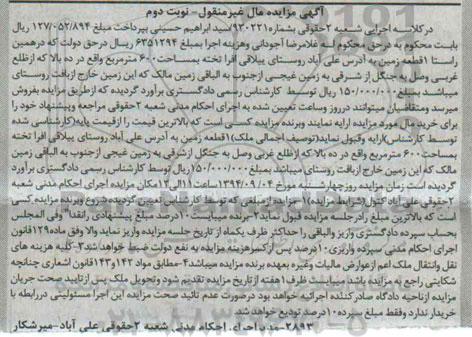 آگهی مزایده مال غیرمنقول - نوبت دوم
در کلاسه اجرایی شعبه ۲ حقوقی بشماره ۹۳۰۲۲۱/ سید ابراهیم حسینی بپرداخت مبلغ ۱۲۷/۰۵۲/۸۹۴ ریال
بابت محکوم به در حق محکوم له غلامرضا آجودانی وهزینه اجرا بمبلغ ۶۳۵۱۲۹۴ ریال در حق دولت که درهمین
راستا ۱ قطعه زمین به آدرس علی آباد روستای ییلاقی افرا تخته بمساحت ۶۰۰ مترمربع واقع در ده بالا که از ظلع
غربی وصل به جنگل از شرقی به زمین غیجی ازجنوب به الباقی زمین مالک که این زمین خارج ازبافت روستای
میباشد بمبلغ ۱۵۰/۰۰۰/۰۰۰ ریال توسط کارشناس رسمی دادگستری برآورد گردیده که از طریق مزایده بفروش
میرسد ومتقاضیان میتوانند درروز وساعت تعیین شده به اجرای احکام مدنی شعبه ۲ حقوقی مراجعه وپیشنهاد خود را
برای خرید مال مورد مزایده ارایه نمایند وبرنده مزایده کسی است که بالاترین قیمت را ازقیمت پایه (کارشناسی شده
توسط کارشناس) ارایه وقبول نماید (توصیف اجمالی ملک) ۱ قطعه زمین به آدرس علی آباد روستای ییلاقی افرا تخته
بمساحت ۶۰۰ مترمربع واقع در ده بالا که از ظلع غربی وصل به جنگل ازشرقی به زمین غیجی ازجنوب به الباقی زمین
مالک که این زمین خارج ازبافت روستای میباشد بمبلغ ۱۵۰/۰۰۰/۰۰۰ ریال توسط کارشناس رسمی دادگستری برآورد
گردیده است زمان مزایده روز چهارشنبه مورخ ۱۳۹۴/۰۹/۰۴ ساعت ۱۱ الی ۱۲ مکان مزایده اجرای احکام مدنی شعبه
۲ حقوقی علی آباد کتول (شرایط مزایده) ۱- مزایده از مبلغی که توسط کارشناس تعیین گردیده شروع وبرنده مزایده کسی
است که بالاترین مبلغ رادرجلسه مزایده قبول نماید ۲- برنده میبایست ۱۰ درصد مبلغ پیشنهادی رانقدا" وفی المجلس
بحساب سپرده دادگستری واریز والباقی را حداکثر ظرف یکماه از تاریخ جلسه مزایده واریز نماید والا وفق ماده ۱۲۹ قانون
اجرای احکام مدنی سپرده واریزی ۱۰ درصد پس از کسرهزینه مزایده به نفع دولت ضبط خواهد شد ۳- کلیه هزینه های
نقل وانتقال ملک اعم ازعوارض مالیات وغیره بعهده برنده مزایده میباشد ۴- مطابق مواد ۱۴۲ و ۱۴۳ قانون اشعاری چنانچه
شکایتی راجع به مزایده باشد میبایست ظرف ۱ هفته از تاریخ مزایده تقدیم شود وتحویل ملک پس ازتایید صحت جریان
مزایده ازناحیه دادگاه صادرکننده اجرائیه خواهد بود درصورت عدم تائید صحت مزایده این اجرا مسئولیتی دررابطه با
خریدار ندارد وفقط مبلغ سپرده ۱۰ درصد تودیع خواهد شد.
۲۸۹۳- مدیر اجرای احکام مدنی شعبه ۲ حقوقی علی آباد - میرشکار